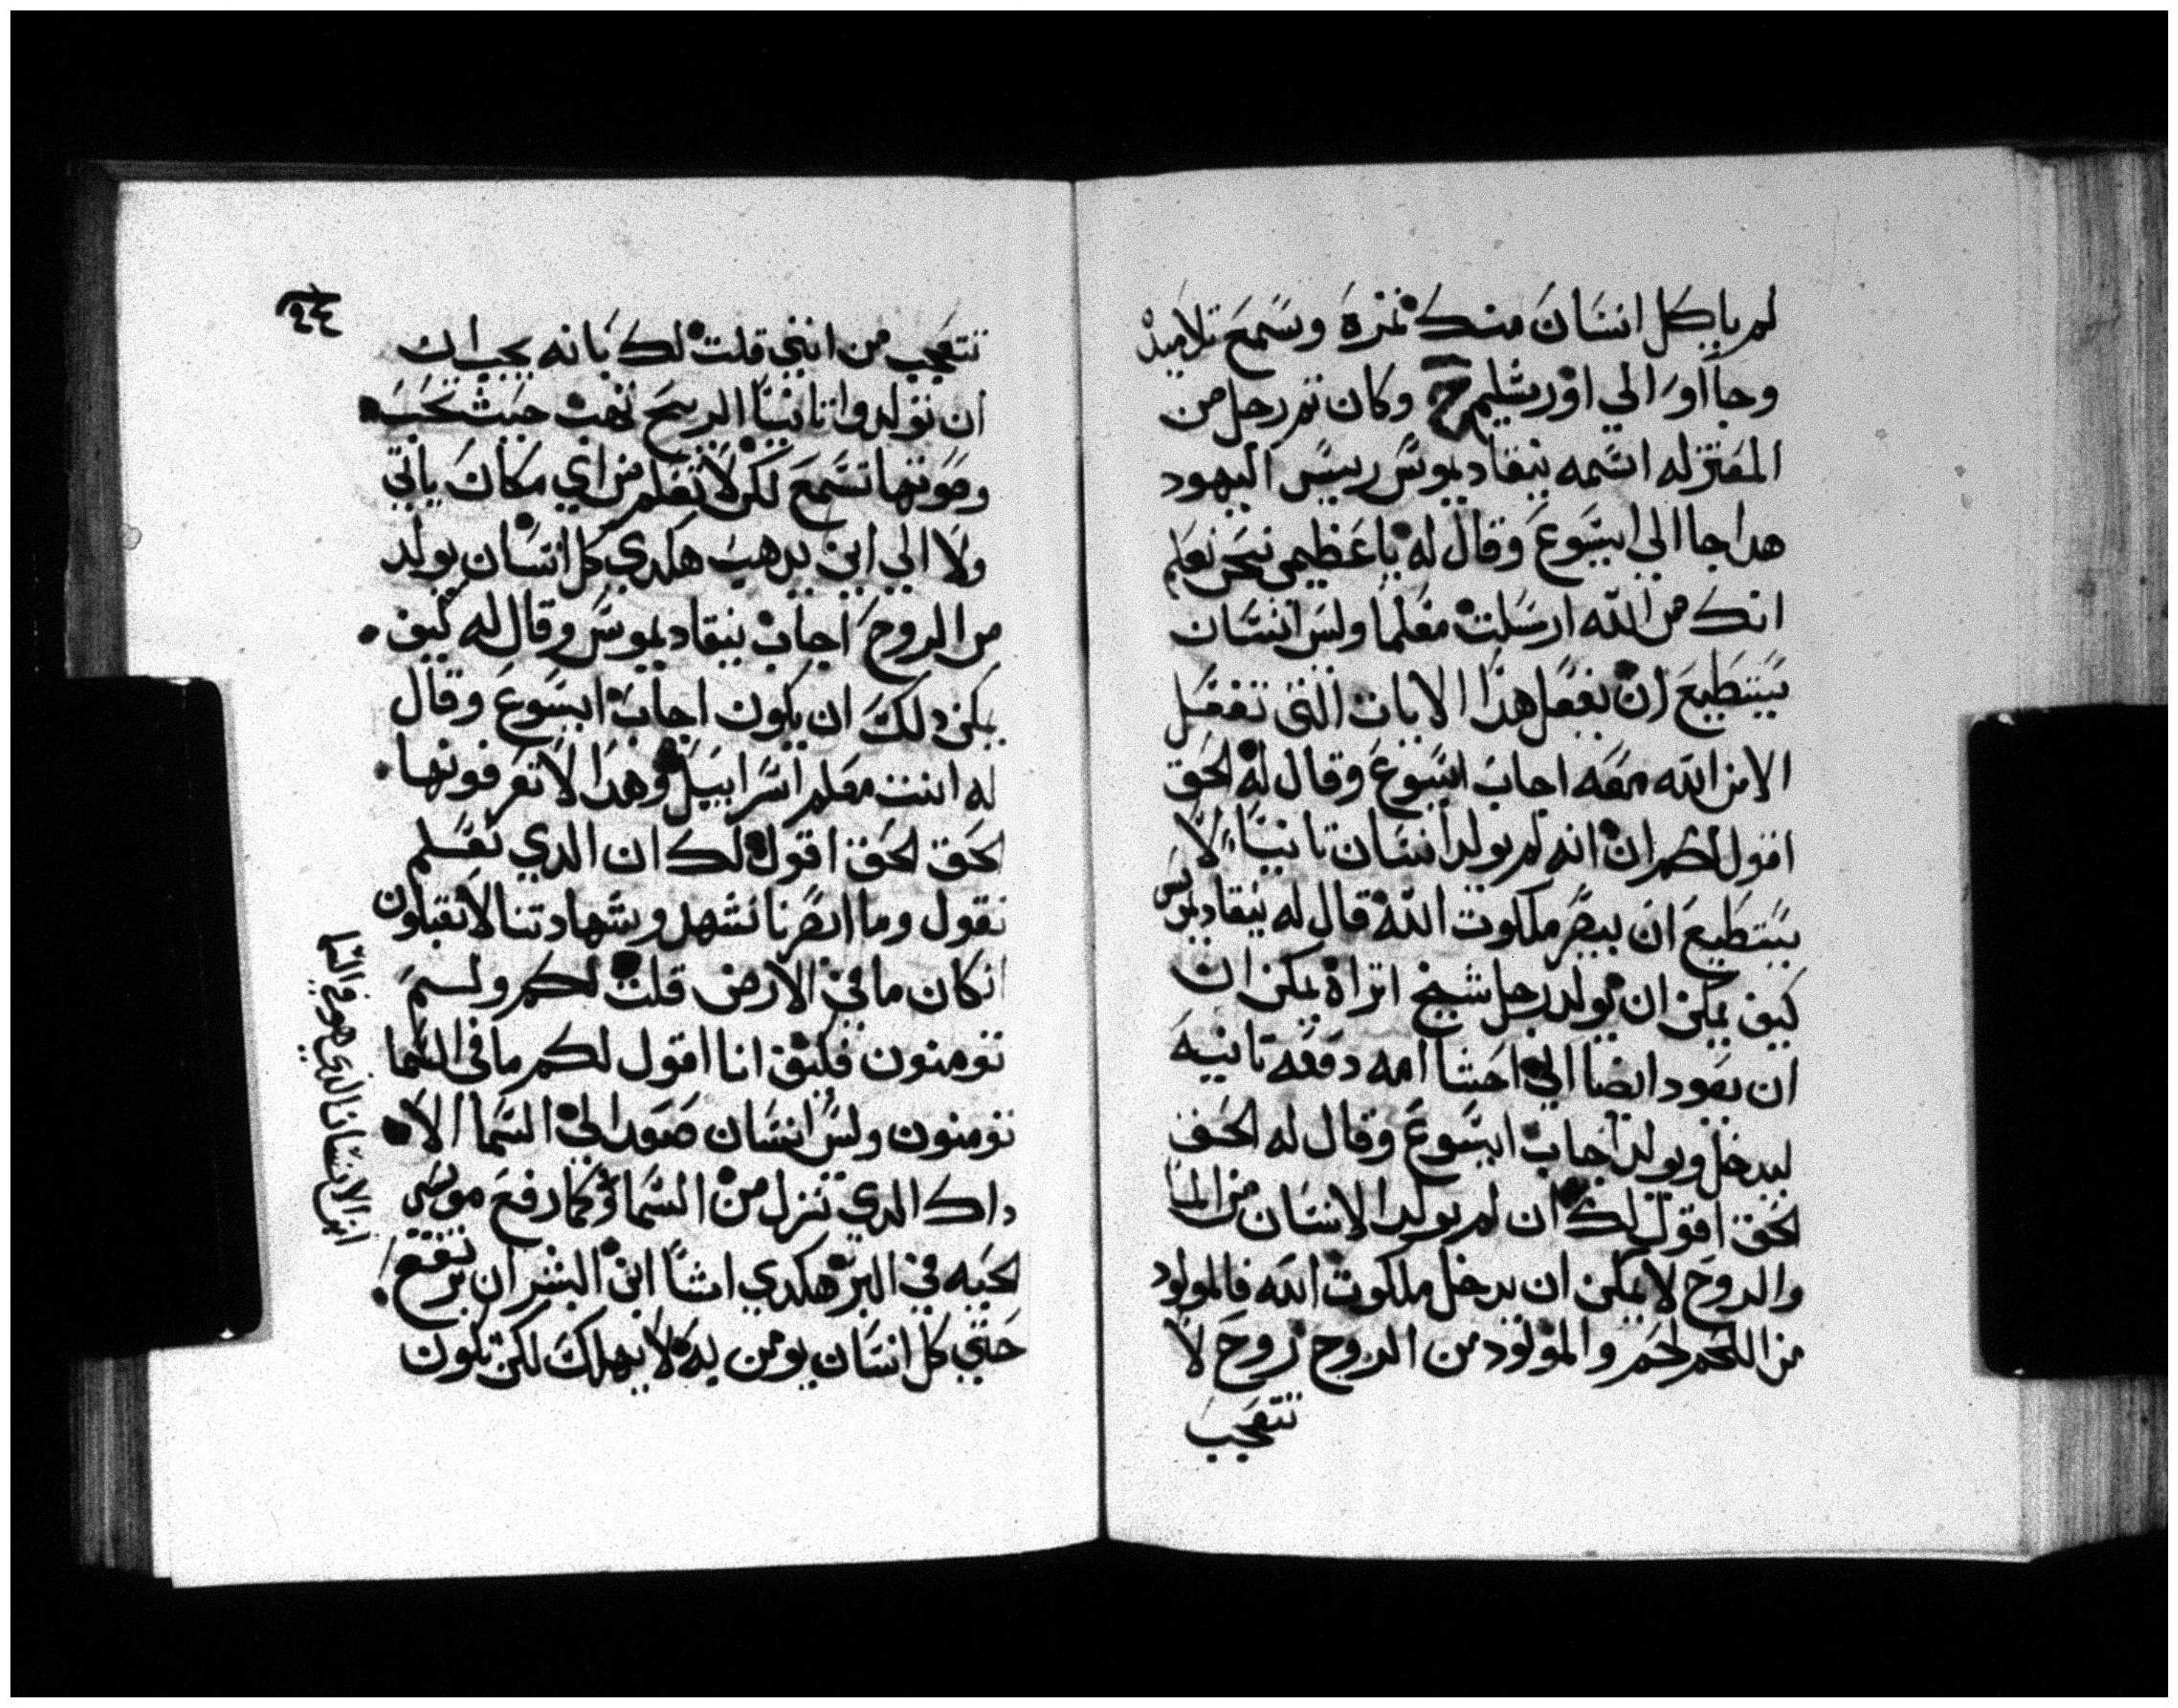 لم ياكل انسان منك ثمرة وسمع تلاميذ
وجااوا الي اورشليم ح وكان تم رجل من
المعتزله اسمه نيقاديموس رييس اليهود
هدا جا الي ايسوع وقال له ياعظيمي نحن نعلم
انك من الله ارسلت معلما وليس انسان
يستطيع ان يفعل هذا الايات التي تفعل
الا من الله معه اجاب ايسوع وقال له الحق
اقول لكم ان انه لم يولد انسان تانيا لا
يستطيع ان يبصر ملكوت الله قال له نيقاديموس
كيف يمكن ان يولد رجل شيخ اتراة يمكن ان
ان يعود ايضا الي احشا امه دفعه تانيه
ليدخل ويولد اجاب ايسوع وقال له الحق
الحق اقول لك ان لم يولد الانسان من الما
والروح لا يمكن ان يدخل ملكوت الله فالمولود
من اللحم لحم والمولود من الروح روح لا
تتعجب
٢٤
تتعجب من انني قلت لك بانه يجب ان
ان تولدوا تانيا الريح تهب حيث تحب
وصوتها تسمع لكن لا تعلم من اي مكان ياتي
ولا الي اين يدهب هكدي كل انسان يولد
من الروح اجاب نيقاديموس وقال له كيف
يمكن دلك ان يكون اجاب ايسوع وقال
له انت معلم اسراييل وهدا لا تعرفونها
الحق الحق اقول لك ان الدي نعلم
نقول وما ابصرنا نشهد وشهادتنا لا تقبلون
انكان ما في الارض قلت لكم ولستم
تومنون فكيف انا اقول لكم ما في السما
تومنون وليس انسان صعد الي السما الا
داك الدي نزل من السما وكما رفع موسي
الحيه في البر هكدي ايشا ابن البشر ان يرتفع
حتي كل انسان يومن به لا يهلك لكن تكون
ابن الانسان الدي هو في السما